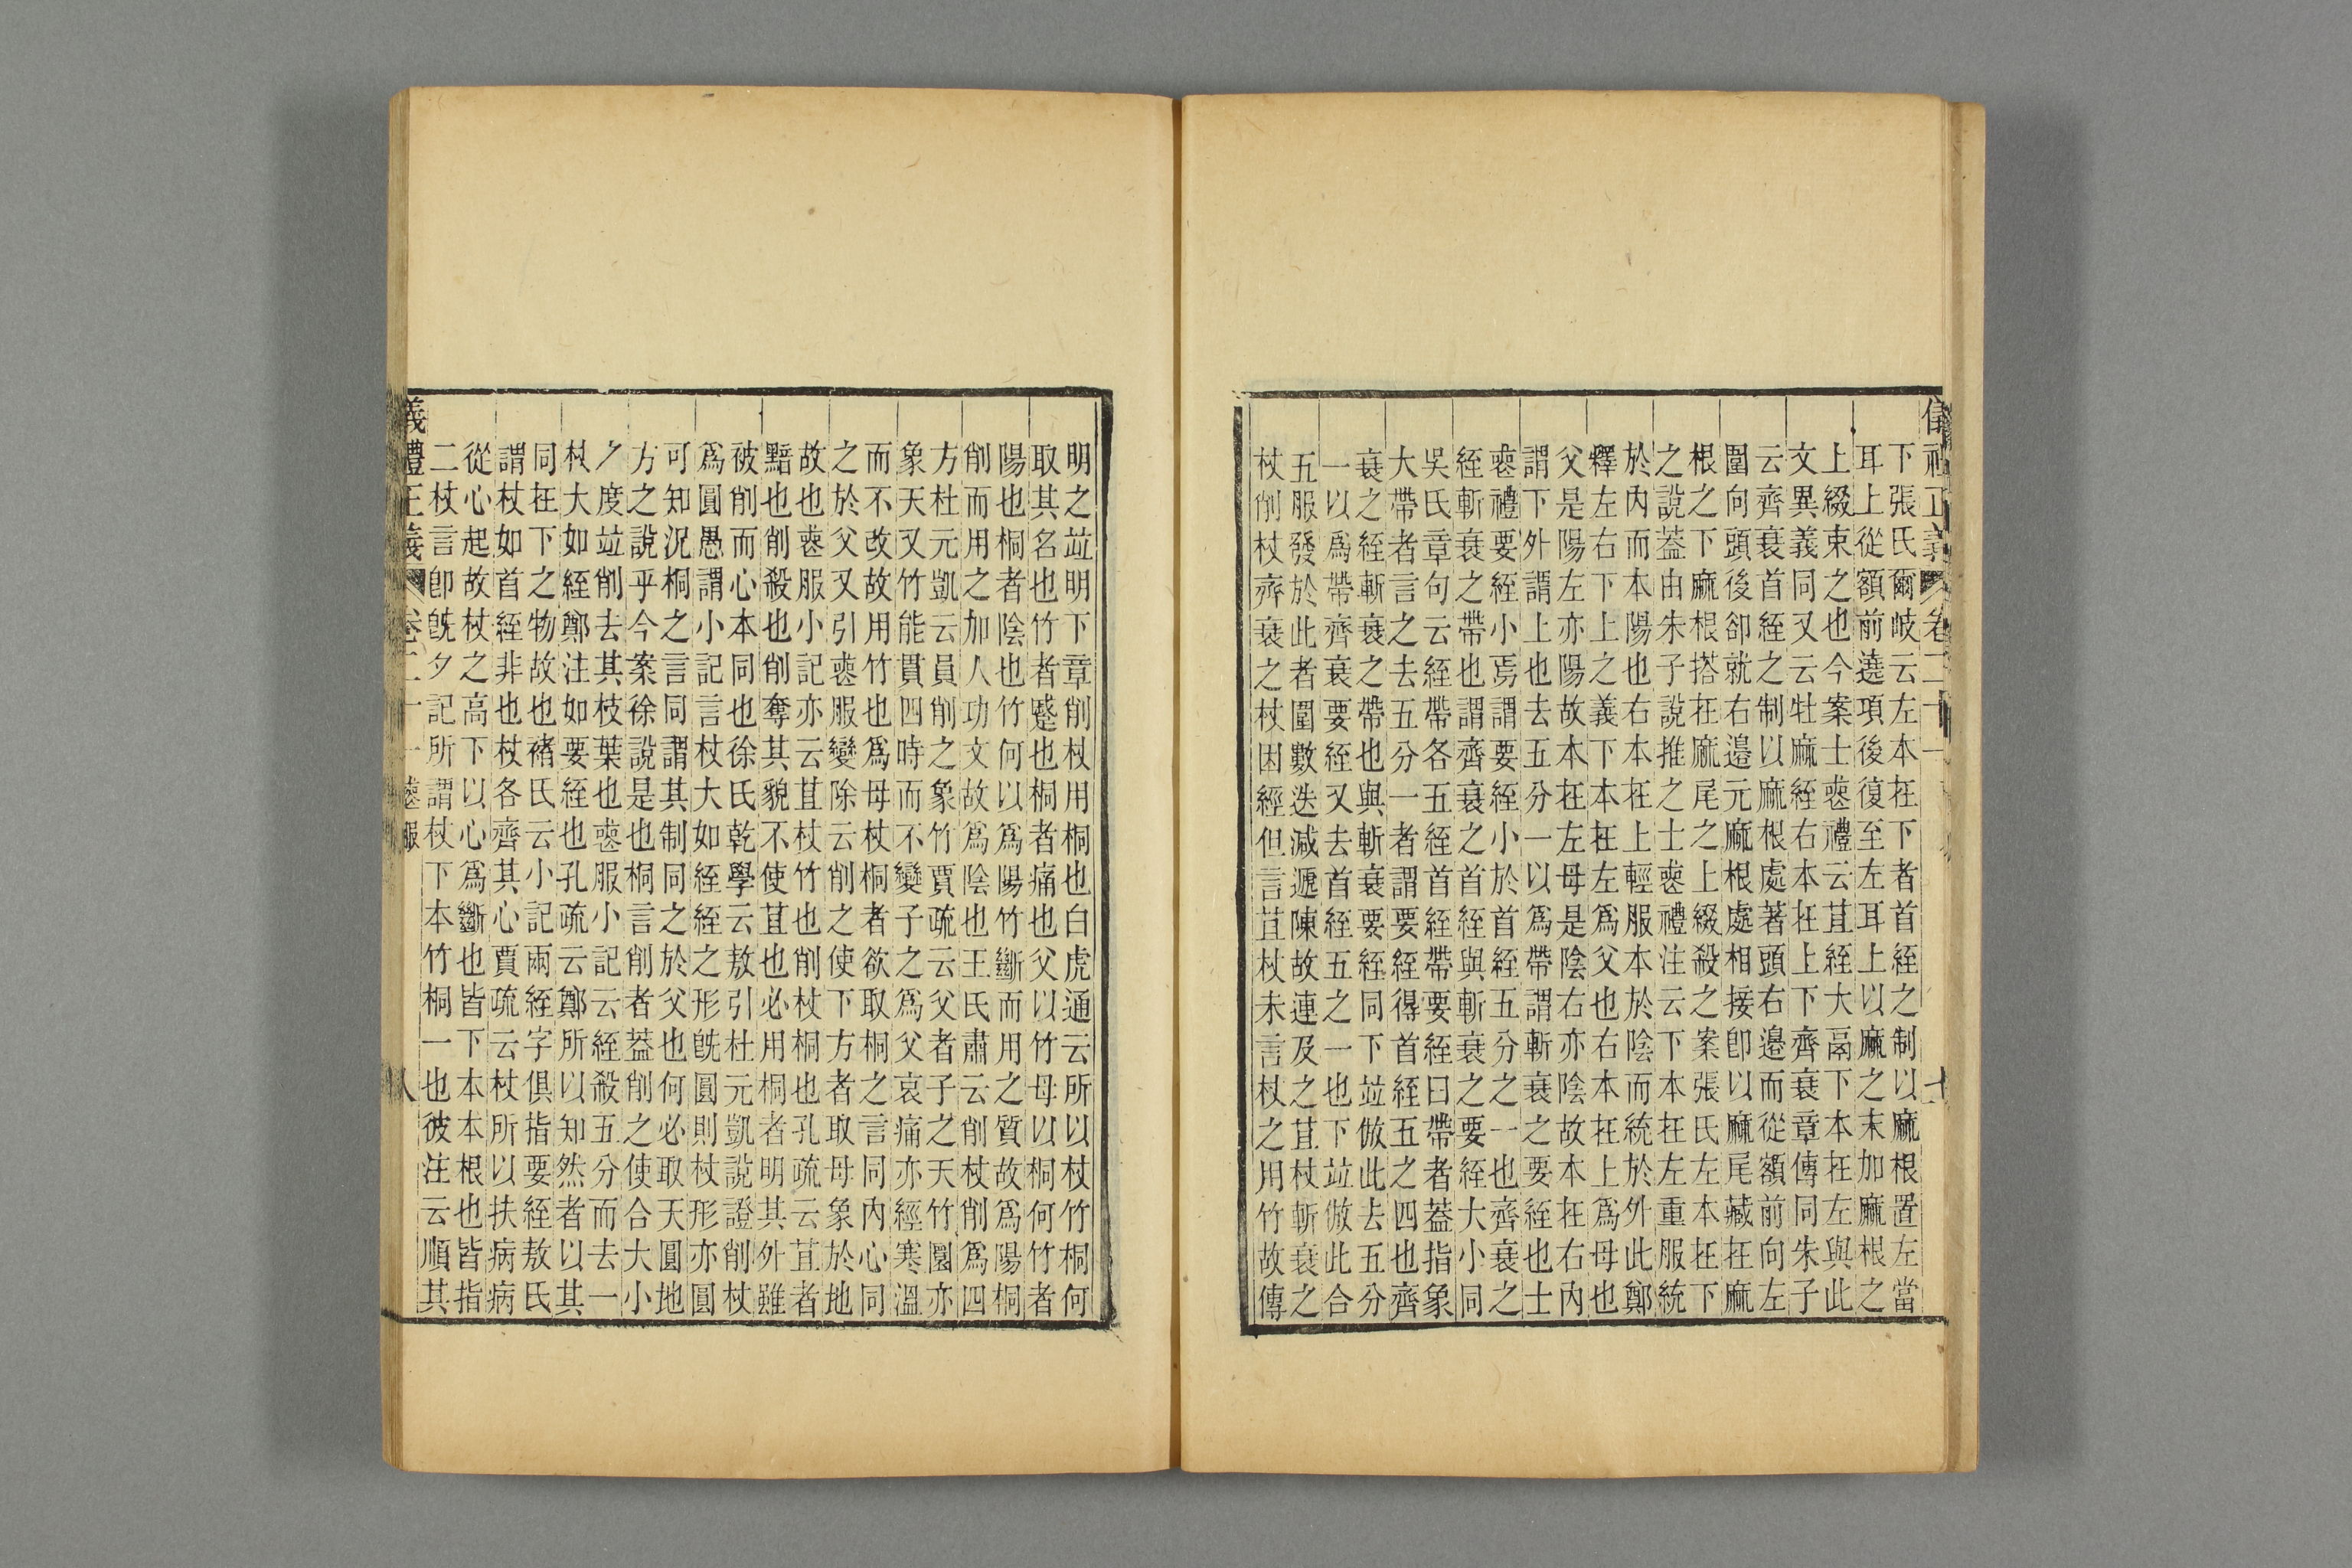 儀禮正義 卷二十一
下張氏爾岐云左本在下者首絰之制以麻根置左當
耳上從額前遶項後復至左耳上以麻之末加麻根之
上綴束之也今案士喪禮云苴絰大鬲下本在左與此
文異義同又云牡麻絰右本在上下齊衰章傳同朱子
云齊衰首絰之制以麻根處著頭右邊而從額前向左
圍向頭後卻就右邊元麻根處相接卽以麻尾藏在麻
根之下麻根搭在麻尾之上綴殺之案張氏左本在下
之說葢由朱子說推之士喪禮注云下本在左重服統
於內而本陽也右本在上輕服本於陰而統於外此鄭
釋左右下上之義下本在左爲父也右本在上爲母也
父是陽左亦陽故本在左母是陰右亦陰故本在右內
謂下外謂上也去五分一以爲帶謂斬衰之要絰也士
喪禮要絰小焉謂要絰小於首絰五分之一也齊衰之
絰斬衰之帶也謂齊衰之首絰與斬衰之要絰大小同
吳氏章句云絰帶各五絰首絰帶要絰曰帶者葢指象
大帶者言之去五分一者謂要絰得首絰五之四也齊
衰之絰斬衰之帶也與斬衰要絰同下竝倣此去五分
一以爲帶齊衰要絰又去首絰五之一也下竝倣此合
五服發於此者圍數迭減遞陳故連及之苴杖斬衰之
杖削杖齊衰之杖因經但言苴杖未言杖之用竹故傳
明之竝明下章削杖用桐也白虎通云所以杖竹桐何
取其名也竹者蹙也桐者痛也父以竹母以桐何竹者
陽也桐者陰也竹何以爲陽竹斷而用之質故爲陽桐
削而用之加人功文故爲陰也王氏肅云削杖削爲四
方杜元凱云員削之象竹賈疏云父者子之天竹圓亦
象天又竹能貫四時而不變子之爲父哀痛亦經寒溫
而不改故用竹也爲母杖桐者欲取桐之言同內心同
之於父又引喪服變除云削之使下方者取母象於地
故也喪服小記亦云苴杖竹也削杖桐也孔疏云苴者
黯也削殺也削奪其貌不使苴也必用桐者明其外雖
被削而心本同也徐氏乾學云敖引杜元凱說證削杖
爲圓愚謂小記言杖大如絰絰之形旣圓則杖形亦圓
可知況桐之言同謂其制同之於父也何必取天圓地
方之說乎今案徐說是也桐言削者葢削之使合大小
之度竝削去其枝葉也喪服小記云絰殺五分而去一
杖大如絰鄭注如要絰也孔疏云鄭所以知然者以其
同在下之物故也褚氏云小記兩絰字俱指要絰敖氏
謂杖如首絰非也杖各齊其心賈疏云杖所以扶病病
從心起故杖之高下以心爲斷也皆下本本根也皆指
二杖言卽旣夕記所謂杖下本竹桐一也彼注云順其
義禮正義 卷二十一 喪服 八